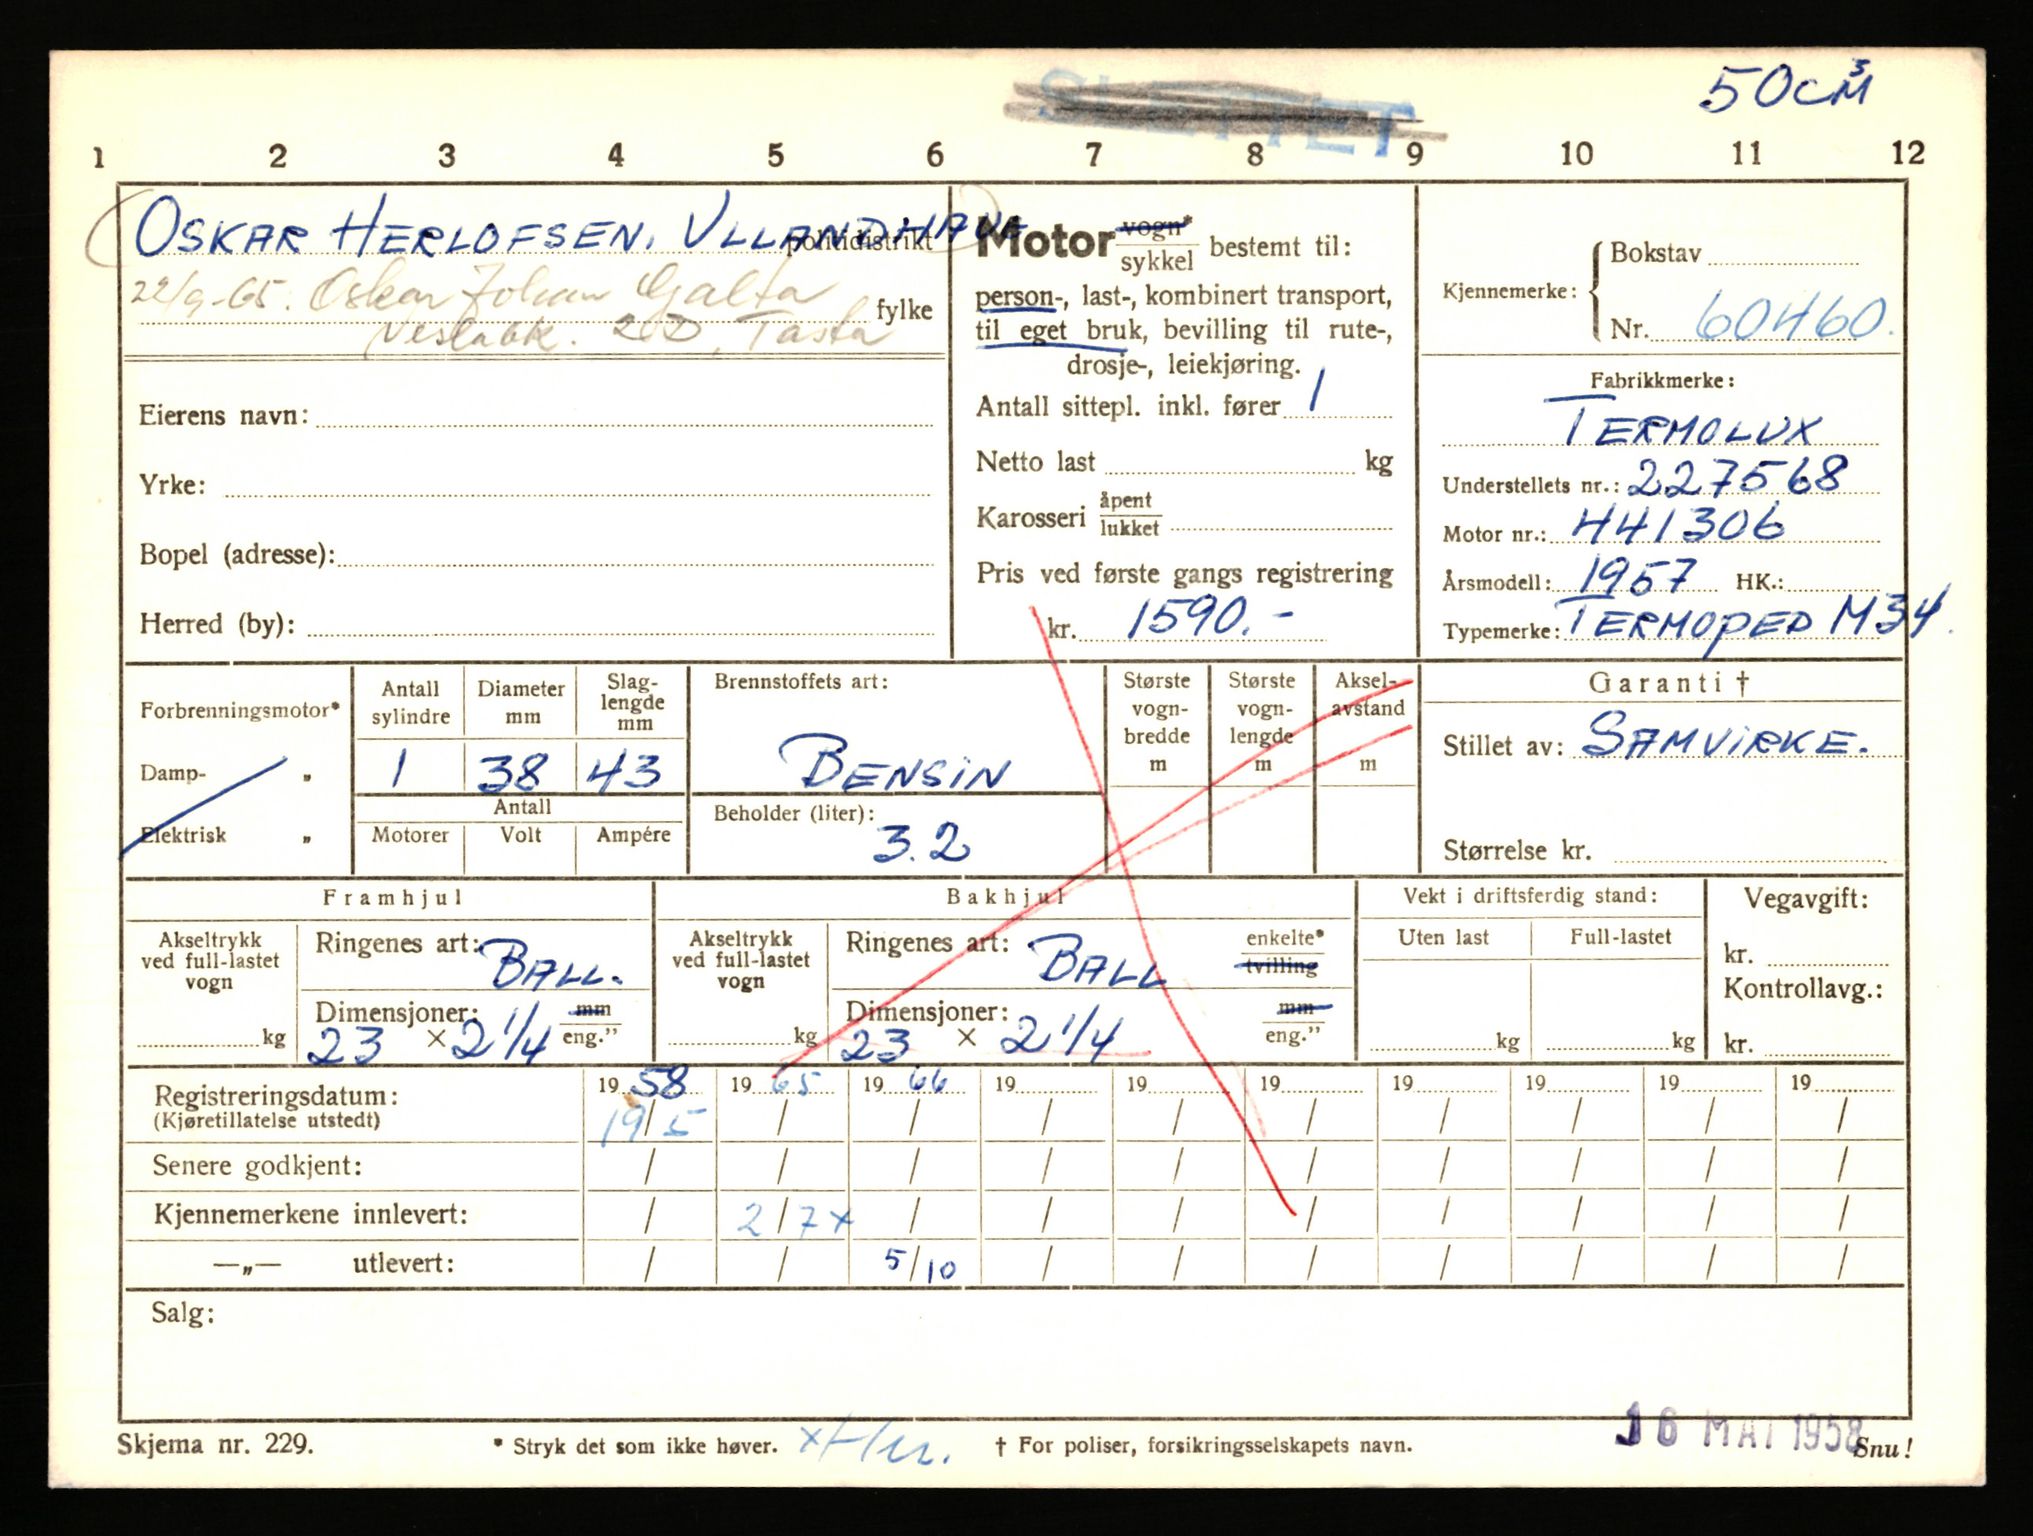 50 CM³
SLETTET
1 2 3 4 5 6 7 8 9 10 11 12
OSKAR HERLOFSEN, ULLANDHAUG
politidistrikt
22/9-65. Oskar Johan Galta
fylke
20, Tasta
Eierens navn:
Yrke:
Bopel (adresse):
Herred (by):
Motor vogn* sykkel bestemt til:
person-, last-, kombinert transport,
til eget bruk, bevilling til rute-,
drosje-, leiekjøring.
Antall sittepl. inkl. fører 1
Netto last kg
Karosseri åpent lukket
Pris ved første gangs registrering
kr. 1590.-
Kjennemerke: Bokstav
Nr. 60460.
Fabrikkmerke:
TERMOLUX
Understellets nr.: 227568
Motor nr.: 441306
Årsmodell: 1957 HK.:
Typemerke: TERMOPED M34.
Forbrenningsmotor*
Damp- "
Elektrisk "
Antall sylindre 1
Diameter mm 38
Slag-lengde mm 43
Antall
Motorer Volt Ampére
Brennstoffets art:
BENSIN
Beholder (liter):
3.2
Største vogn-bredde m
Største vogn-lengde m
Aksel-avstand m
Garanti †
Stillet av: SAMVIRKE.
Størrelse kr.
Framhjul
Akseltrykk ved full-lastet vogn
kg
Ringenes art: BALL.
Dimensjoner: mm
23 × 2 1/4 eng."
Bakhjul
Akseltrykk ved full-lastet vogn
kg
Ringenes art: BALL enkelte* tvilling
Dimensjoner: mm
23 × 2 1/4 eng."
Vekt i driftsferdig stand:
Uten last Full-lastet
kg kg
Vegavgift:
kr.
Kontrollavg.:
kr.
Registreringsdatum: 19 58 19 65 19 66 19 19 19 19 19 19 19
(Kjøretillatelse utstedt) 19/5 / / / / / / / / /
Senere godkjent: / / / / / / / / / /
Kjennemerkene innlevert: / 2/7 x / / / / / / / /
—„— utlevert: / / 5/10 / / / / / / /
Salg:
Skjema nr. 229.
* Stryk det som ikke høver.
† For poliser, forsikringsselskapets navn.
16 MAI 1958
Snu!